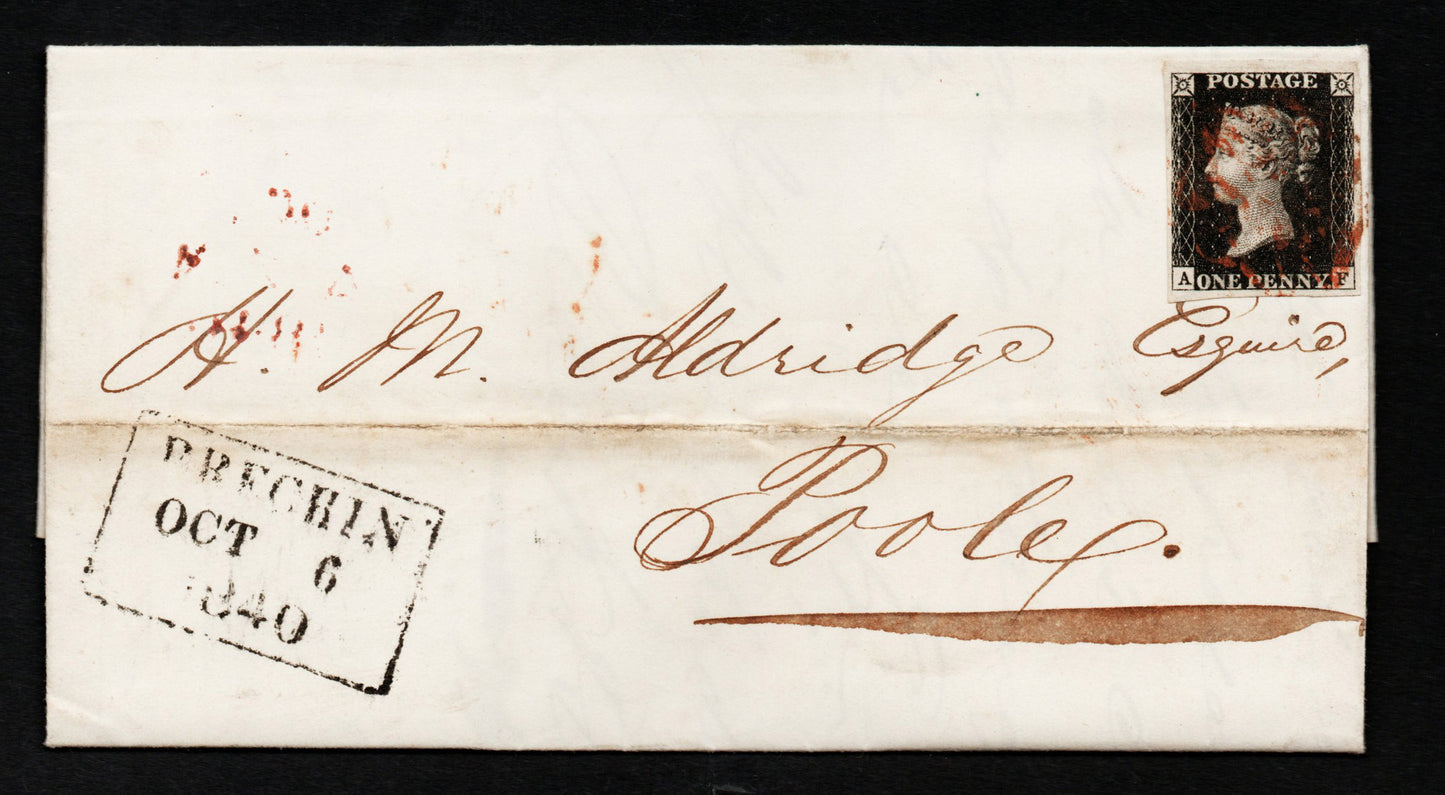 POSTAGE
A ONE PENNY. F
H. M. Aldridge Esquire,
Poole.
BRECHIN
OCT 6
1840